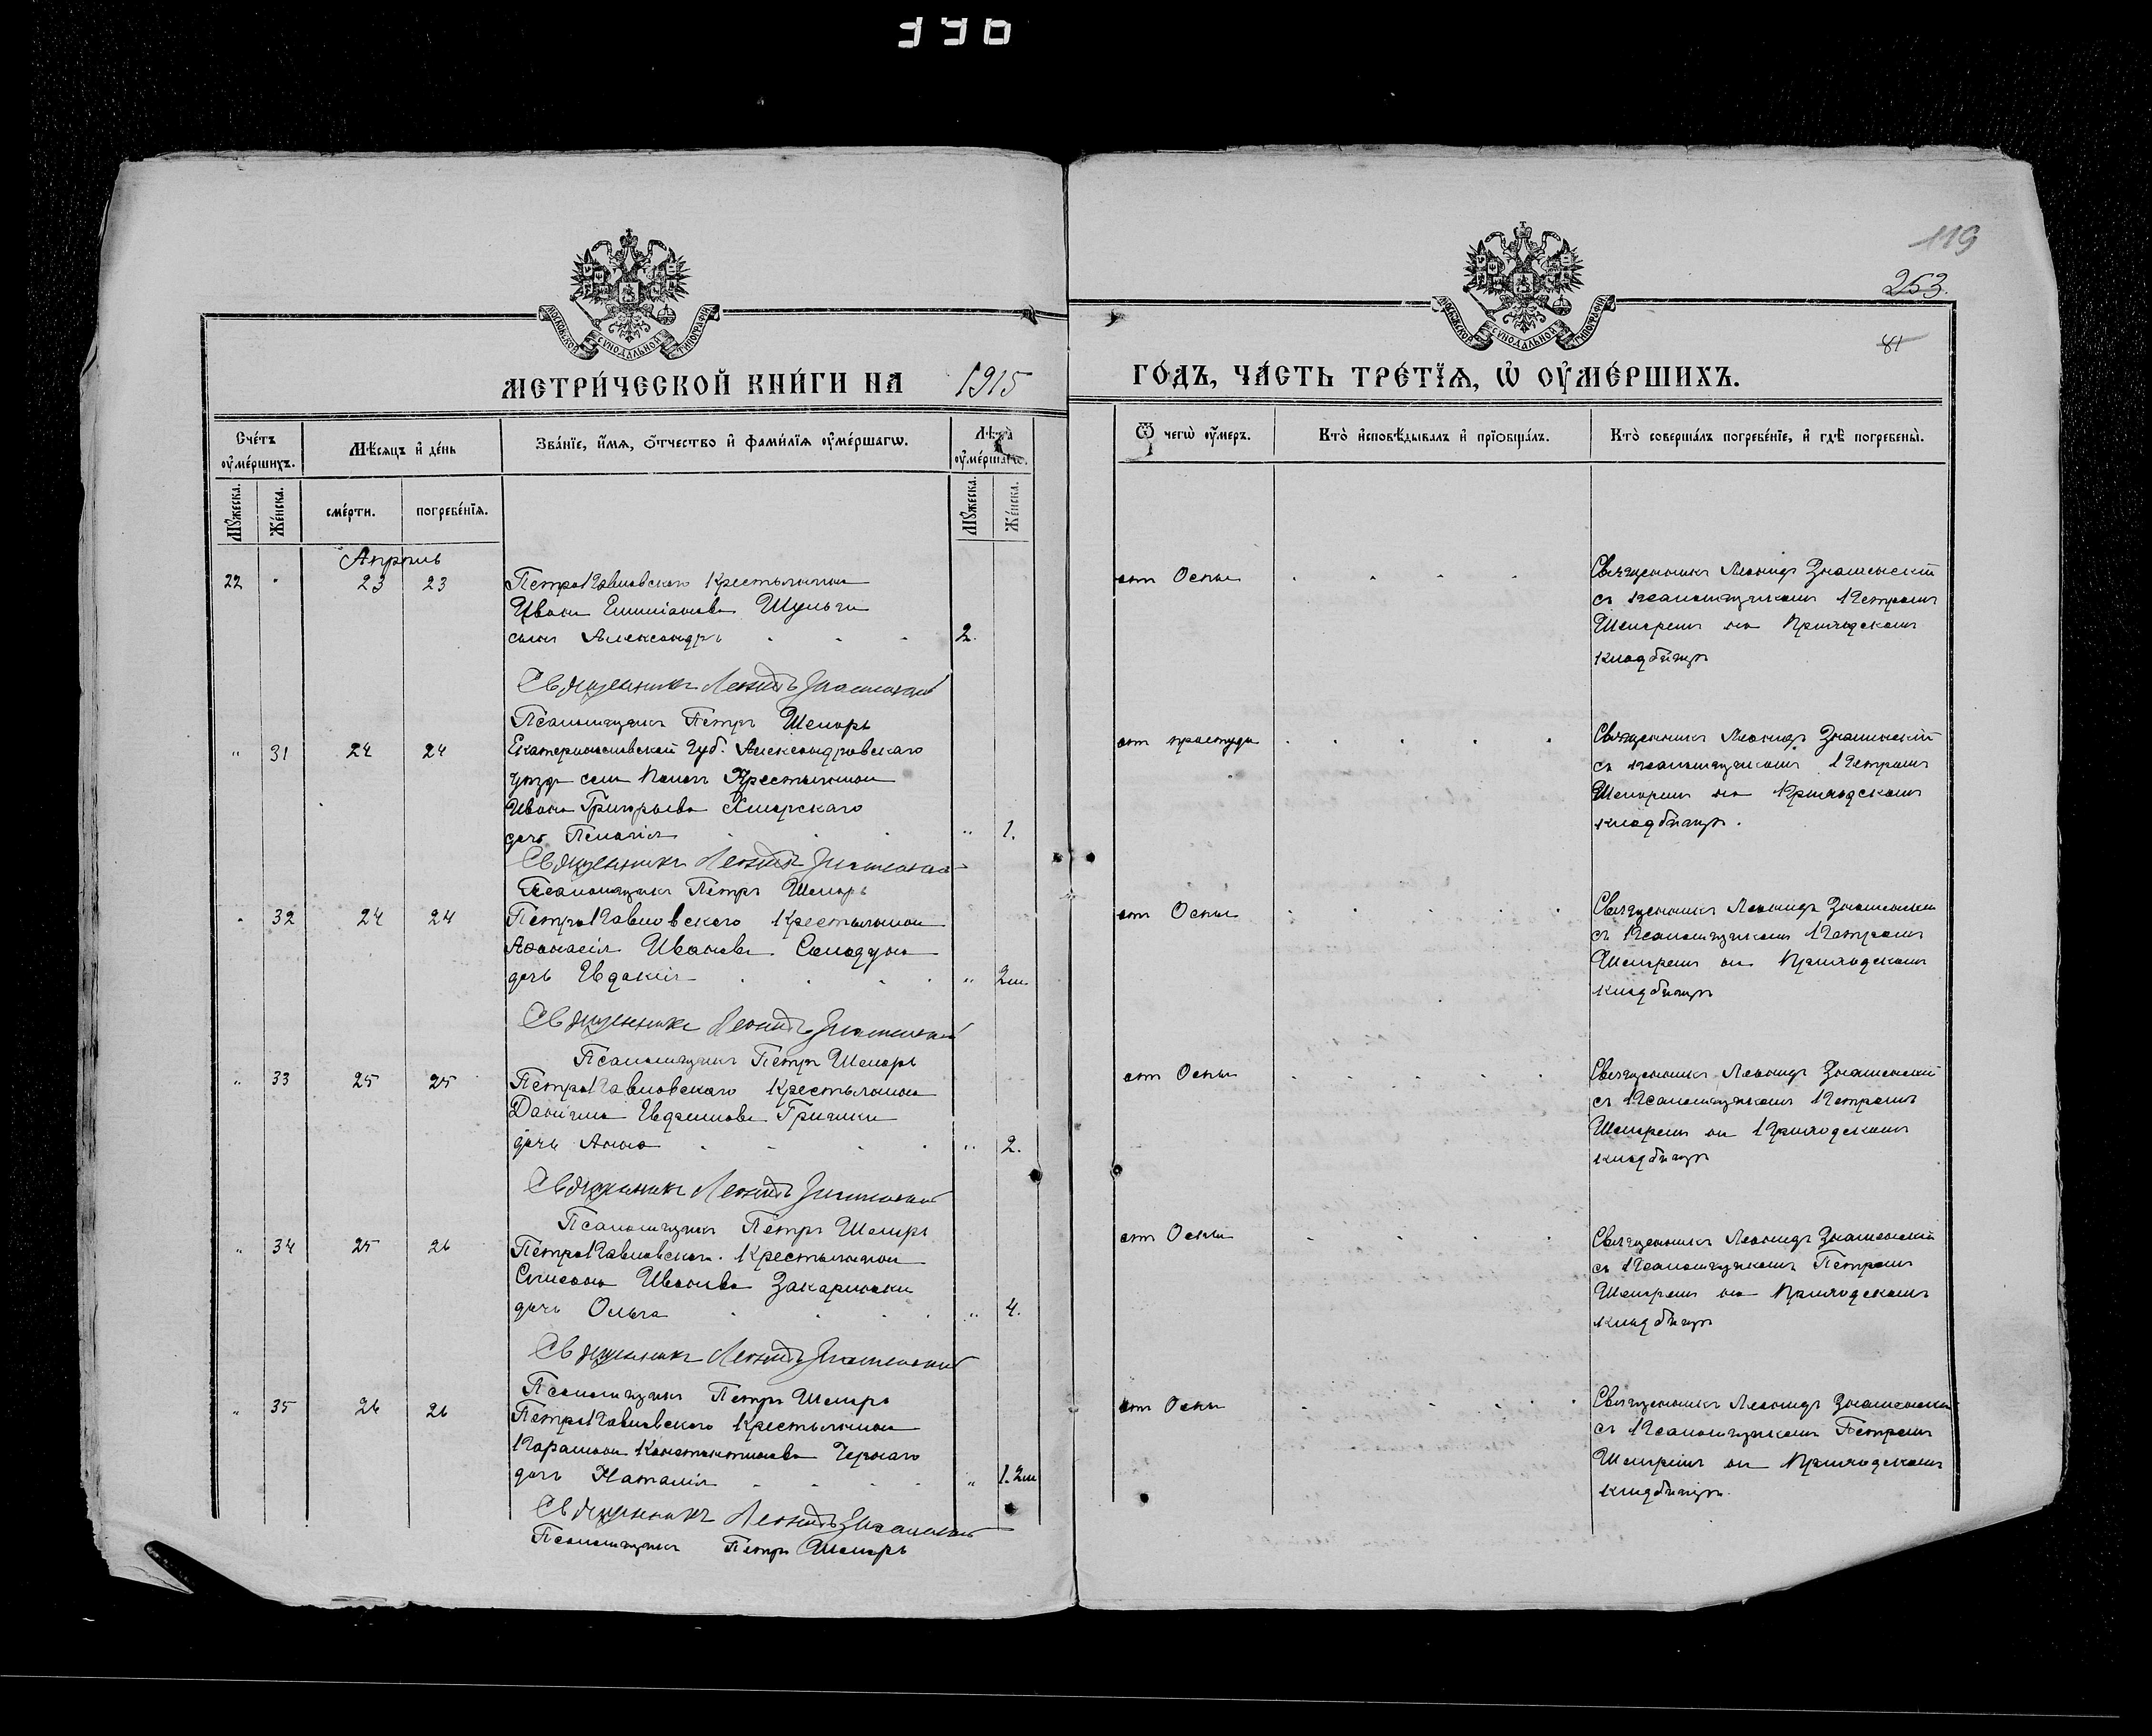 396
119
253.
81
МОСКОВСКОЙ СѴНОДАЛЬНОЙ ТИПОГРАФІИ
МОСКОВСКОЙ СѴНОДАЛЬНОЙ ТИПОГРАФІИ
МЕТРИ́ЧЕСКОЙ КНИ́ГИ НА 1915 ГО́ДЪ, ЧА́СТЬ ТРЕ́ТЇѦ, Ѡ҆ ОУ҆МЕ́РШИХЪ.
Сче́тъ оу҆ме́ршихъ.
Мѣ́сяцъ и҆ де́нь
Зва́нїе, и҆́мѧ, ѻ҆́тчество и҆ фами́лїѧ оу҆ме́ршагѡ.
Лѣ́та оу҆ме́ршагѡ.
Ѿ чегѡ̀ оу҆́меръ.
Кто̀ и҆сповѣ́дывалъ и҆ прїѡбща́лъ.
Кто̀ соверша́лъ погребе́нїе, и҆ гдѣ̀ погребены̀.
Мꙋ́жеска.
Же́нска.
сме́рти.
погребе́нїѧ.
Мꙋ́жеска.
Же́нска.
Апрѣль
22 " 23 23 Петропавловскаго крестьянина
Ивана Емиліанова Шульги
сынъ Александръ 2.
от Оспы
Священникъ Леонидъ Знаменскій
съ Псаломщикомъ Петромъ
Шепаремъ на Приходскомъ
кладбищѣ
Священникъ Леонидъ Знаменскій
Псаломщикъ Петръ Шепарь
" 31 24 24 Екатеринославской Губ. Александровскаго
уѣзда села крестьянина
Ивана Григорьева
дочь Пелагія " 1.
от простуды
Священникъ Леонидъ Знаменскій
съ Псаломщикомъ Петромъ
Шепаремъ на Приходскомъ
кладбищѣ.
Священникъ Леонидъ Знаменскій
Псаломщикъ Петръ Шепарь
" 32 24 24 Петропавловскаго крестьянина
Аѳанасія Иванова Солодуна
дочь Евдокія " 2м.
от Оспы
Священникъ Леонидъ Знаменскій
съ Псаломщикомъ Петромъ
Шепаремъ на Приходскомъ
кладбищѣ
Священникъ Леонидъ Знаменскій
Псаломщикъ Петръ Шепарь
" 33 25 25 Петропавловскаго крестьянина
Даніила Евдокимова
дочь Анна " 2.
от Оспы
Священникъ Леонидъ Знаменскій
съ Псаломщикомъ Петромъ
Шепаремъ на Приходскомъ
кладбищѣ
Священникъ Леонидъ Знаменскій
Псаломщикъ Петръ Шепарь
" 34 25 26 Петропавловскаго крестьянина
Симеона Иванова
дочь Ольга " 4.
от Оспы
Священникъ Леонидъ Знаменскій
съ Псаломщикомъ Петромъ
Шепаремъ на Приходскомъ
кладбищѣ
Священникъ Леонидъ Знаменскій
Псаломщикъ Петръ Шепарь
" 35 26 26 Петропавловскаго крестьянина
Константинова Чернаго
дочь Наталія " 1.2м
от Оспы
Священникъ Леонидъ Знаменскій
съ Псаломщикомъ Петромъ
Шепаремъ на Приходскомъ
кладбищѣ.
Священникъ Леонидъ Знаменскій
Псаломщикъ Петръ Шепарь